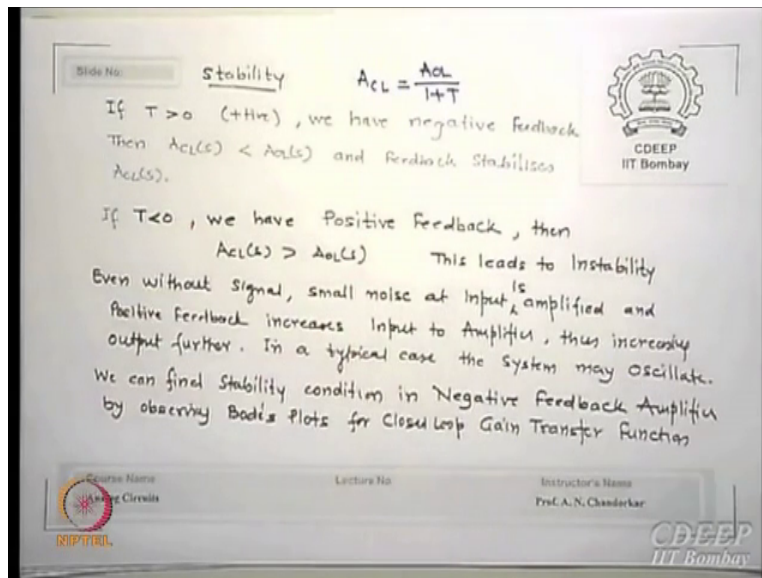 Slide No:
Stability
A_CL = A_OL / 1+T
CDEEP
IIT Bombay
If T > 0 (+tive), we have negative feedback
Then A_CL(s) < A_OL(s) and feedback Stabilises
A_CL(s).
If T < 0, we have Positive Feedback, then
A_CL(s) > A_OL(s) This leads to Instability
Even without Signal, small noise at input is amplified and
Positive Feedback increases Input to Amplifier, thus increasing
output further. In a typical case the system may oscillate.
We can find Stability condition in Negative Feedback Amplifier
by observing Bode's Plots for Closed Loop Gain Transfer Function
Course Name
Lecture No
Instructor's Name
Analog Circuits
Prof. A. N. Chandorkar
NPTEL
CDEEP
IIT Bombay